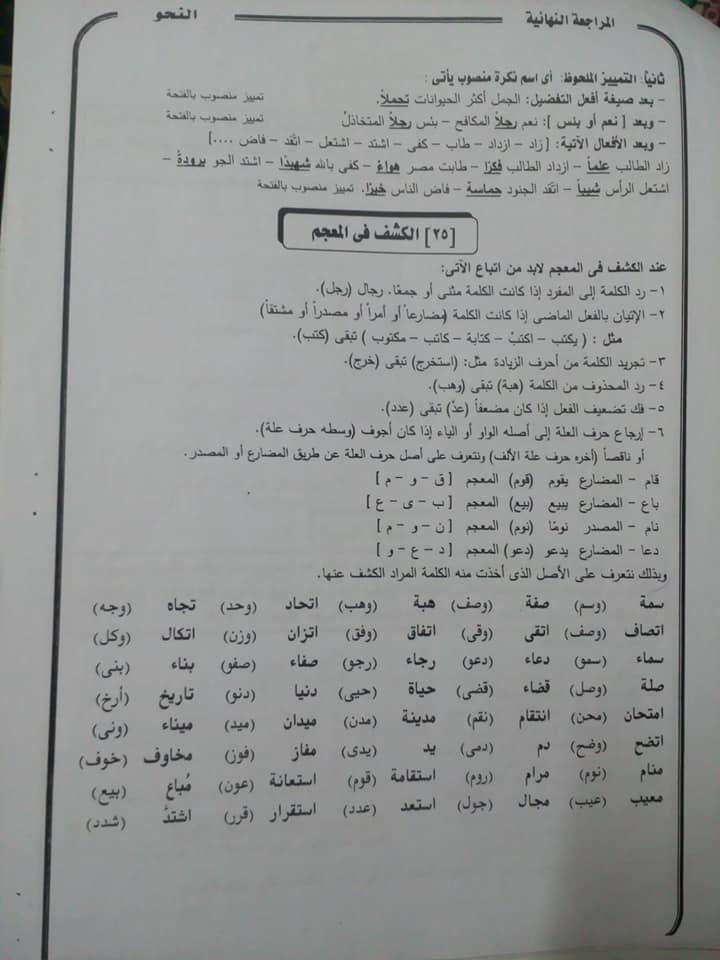 المراجعة النهائية النحو
ثانياً: التمييز الملحوظ: أى اسم نكرة منصوب يأتى :
- بعد صيغة أفعل التفضيل: الجمل أكثر الحيوانات تحملاً. تمييز منصوب بالفتحة
- وبعد [ نعم أو بئس ]: نعم رجلاً المكافح - بئس رجلاً المتخاذل تمييز منصوب بالفتحة
- وبعد الأفعال الآتية: [ زاد - ازداد - طاب - كفى - اشتد - اشتعل - اتقد - فاض .... ]
زاد الطالب علماً - ازداد الطالب فكرًا - طابت مصر هواءً - كفى بالله شهيدًا - اشتد الجو برودةً -
اشتعل الرأس شيباً - اتقد الجنود حماسة - فاض الناس خيرًا. تمييز منصوب بالفتحة
[٢٥] الكشف فى المعجم
عند الكشف فى المعجم لابد من اتباع الآتى:
١- رد الكلمة إلى المفرد إذا كانت الكلمة مثنى أو جمعًا. رجال (رجل).
٢- الإتيان بالفعل الماضى إذا كانت الكلمة (مضارعاً أو أمراً أو مصدراً أو مشتقاً)
مثل : ( يكتب - اكتبْ - كتابة - كاتب - مكتوب ) تبقى (كتب).
٣- تجريد الكلمة من أحرف الزيادة مثل: (استخرج) تبقى (خرج).
٤- رد المحذوف من الكلمة (هبة) تبقى (وهب).
٥- فك تضعيف الفعل إذا كان مضعفاً (عدّ) تبقى (عدد).
٦- إرجاع حرف العلة إلى أصله الواو أو الياء إذا كان أجوف (وسطه حرف علة).
أو ناقصاً (أخره حرف علة الألف) ونتعرف على أصل حرف العلة عن طريق المضارع أو المصدر.
قام - المضارع يقوم (قوم) المعجم [ ق - و - م ]
باع - المضارع يبيع (بيع) المعجم [ ب - ى - ع ]
نام - المصدر نومًا (نوم) المعجم [ ن - و - م ]
دعا - المضارع يدعو (دعو) المعجم [ د - ع - و ]
وبذلك نتعرف على الأصل الذى أخذت منه الكلمة المراد الكشف عنها.
سمة (وسم) صفة (وصف) هبة (وهب) اتحاد (وحد) تجاه (وجه)
اتصاف (وصف) اتقى (وقى) اتفاق (وفق) اتزان (وزن) اتكال (وكل)
سماء (سمو) دعاء (دعو) رجاء (رجو) صفاء (صفو) بناء (بنى)
صلة (وصل) قضاء (قضى) حياة (حيى) دنيا (دنو) تاريخ (أرخ)
امتحان (محن) انتقام (نقم) مدينة (مدن) ميدان (ميد) ميناء (ونى)
اتضح (وضح) دم (دمى) يد (يدى) مفاز (فوز) مخاوف (خوف)
منام (نوم) مرام (روم) استقامة (قوم) استعانة (عون) مُباع (بيع)
معيب (عيب) مجال (جول) استعد (عدد) استقرار (قرر) اشتدَّ (شدد)